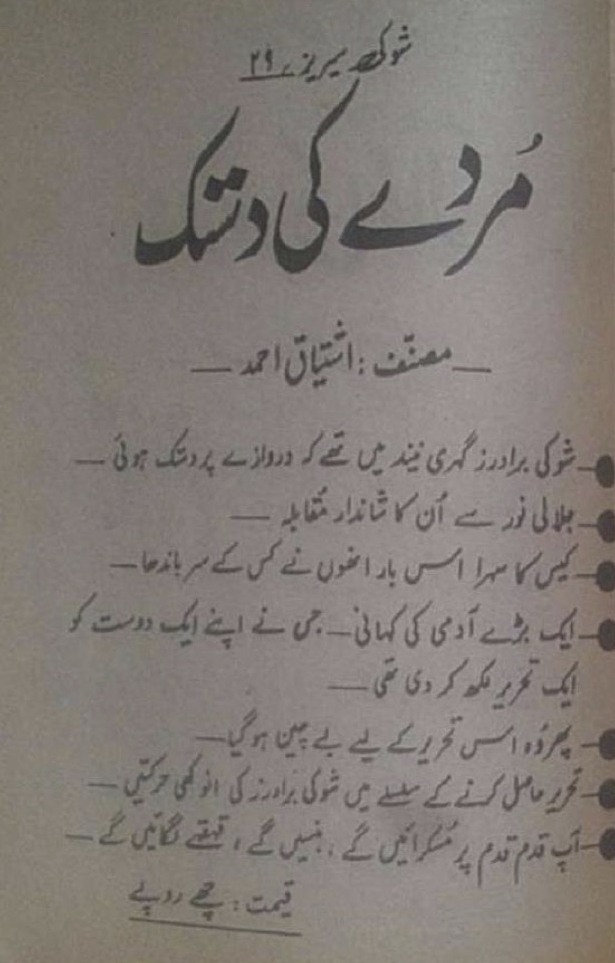 شوکی سیریز، ۲۹
مُردے کی دستک
— مصنّف : اشتیاق احمد —
شوکی برادرز گہری نیند میں تھے کہ دروازے پر دستک ہوئی —
جلالی نور سے اُن کا شاندار مُقابلہ —
کیس کا سہرا اس بار انھوں نے کس کے سر باندھا —
ایک بڑے آدمی کی کہانی — جس نے اپنے ایک دوست کو
ایک تحریر لکھ کر دی تھی —
پھر وُہ اس تحریر کے لیے بے چین ہو گیا —
تحریر حاصل کرنے کے سلسلے میں شوکی برادرز کی انوکھی حرکتیں —
آپ قدم قدم پر مُسکرائیں گے ، ہنسیں گے ، قہقہے لگائیں گے —
قیمت : چھے روپے